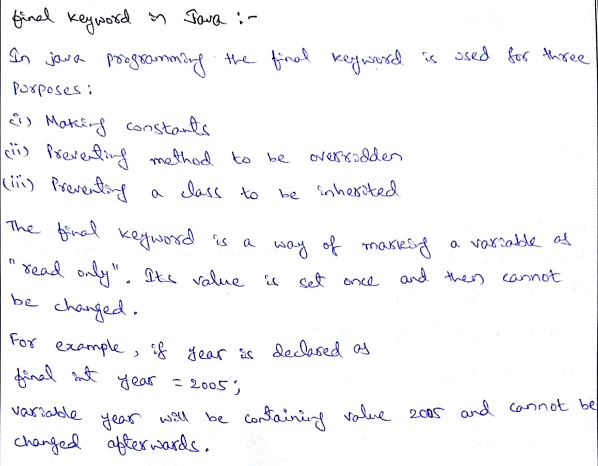 final keyword in Java :-
In java programming the final keyword is used for three
purposes :
(i) Making constants
(ii) Preventing method to be overridden
(iii) Preventing a class to be inherited
The final keyword is a way of marking a variable as
"read only". Its value is set once and then cannot
be changed.
For example, if year is declared as
final int year = 2005;
variable year will be containing value 2005 and cannot be
changed afterwards.